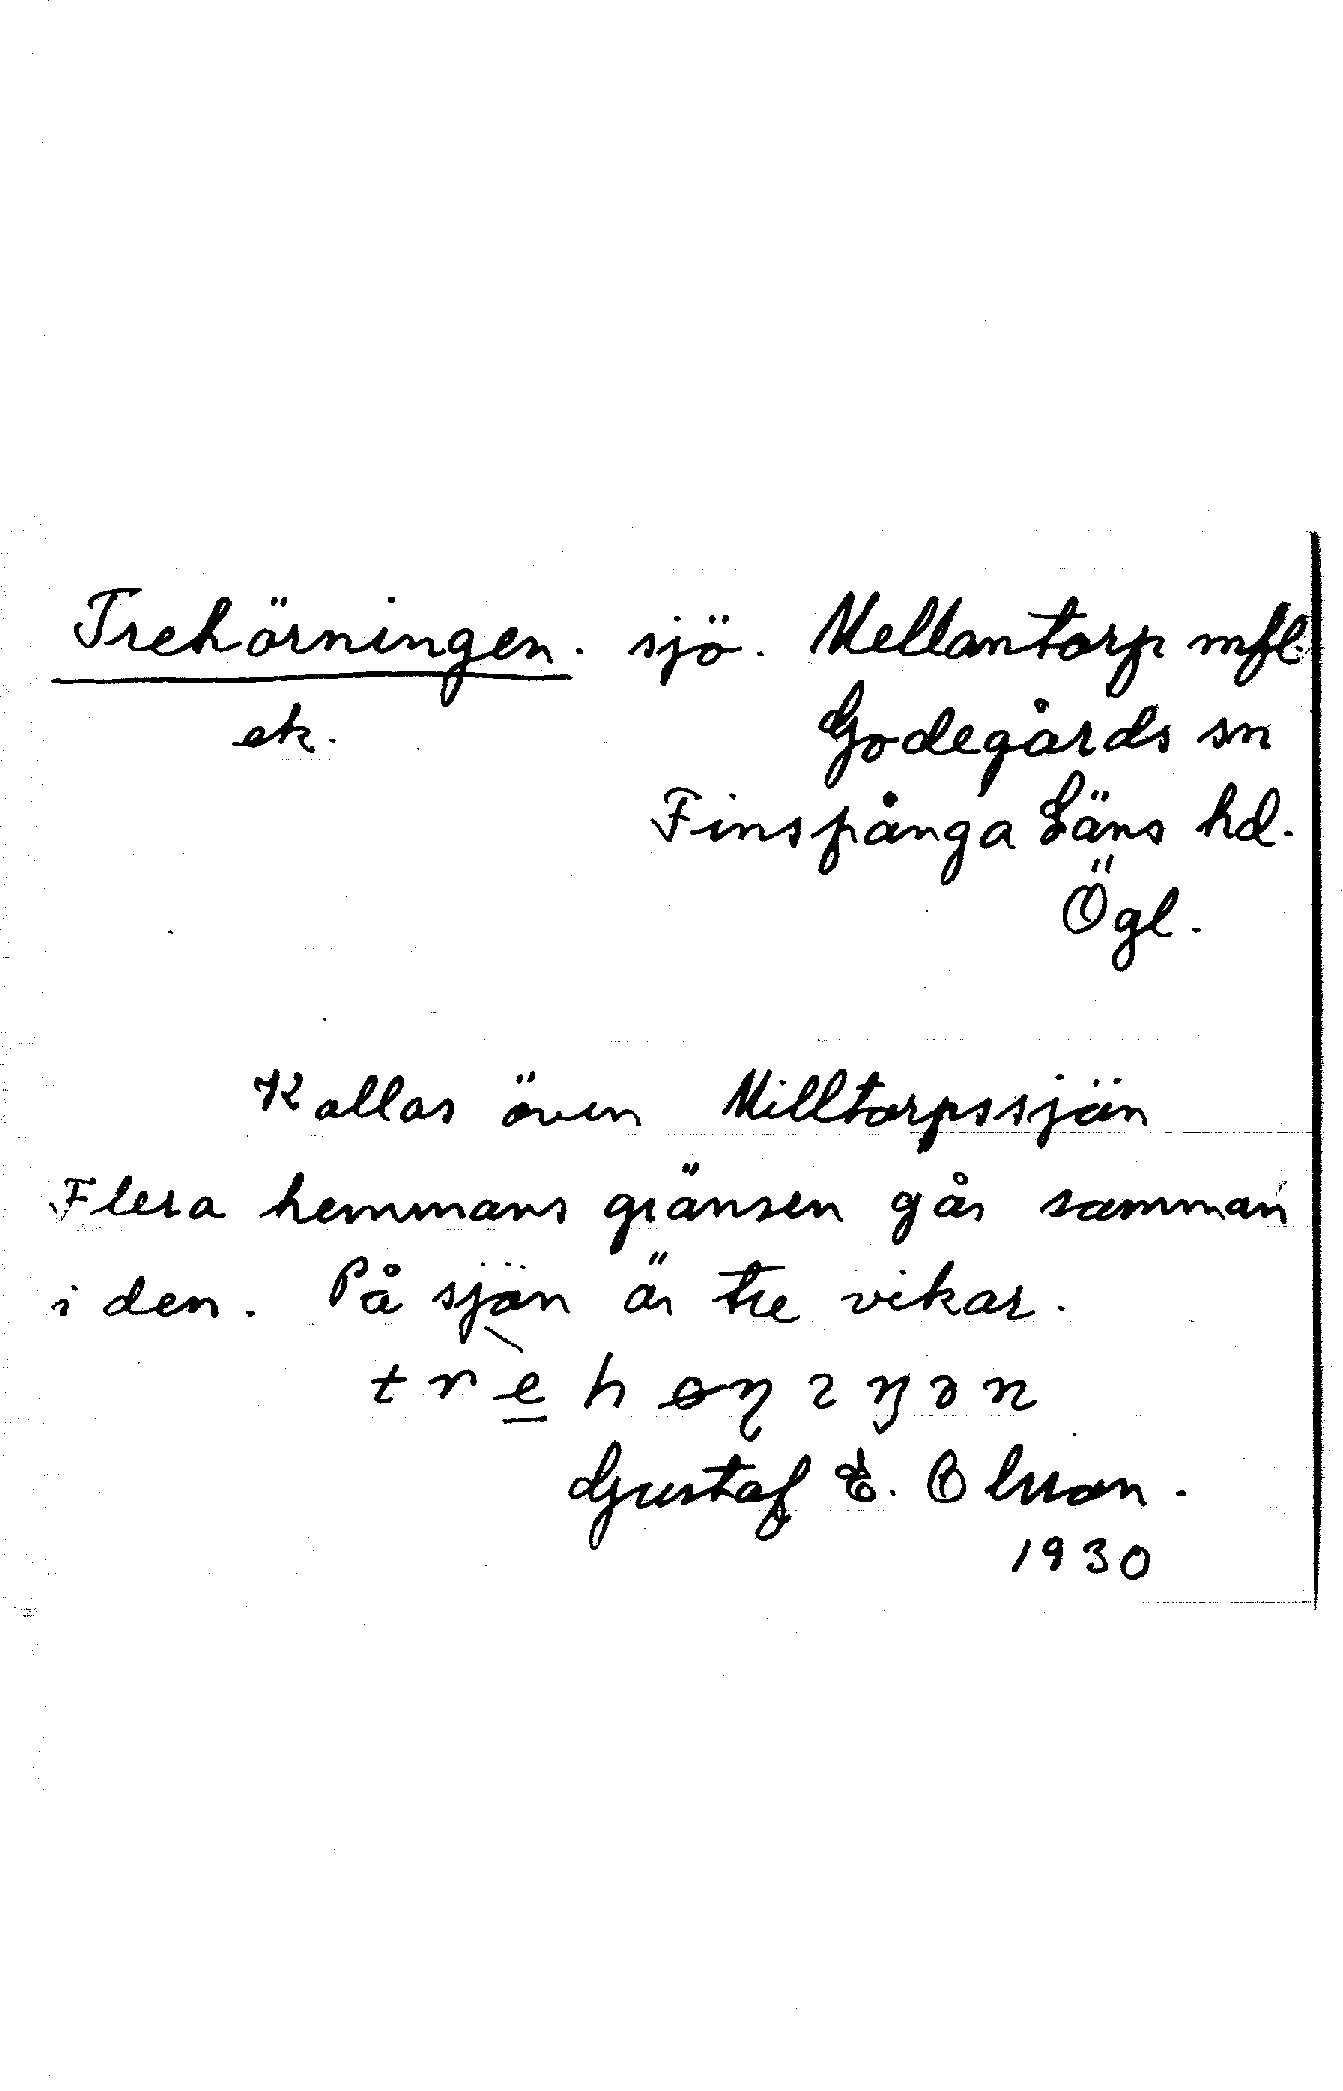 Trehörningen. sjö. Mellantorp mfl.
ek. Godegårds sn
Finspånga Läns hd.
Ögl.
Kallas även Milltorpssjön
Flera hemmans gränsen går samman
i den. På sjön är tre vikar.
Gustaf E. Olsson.
1930